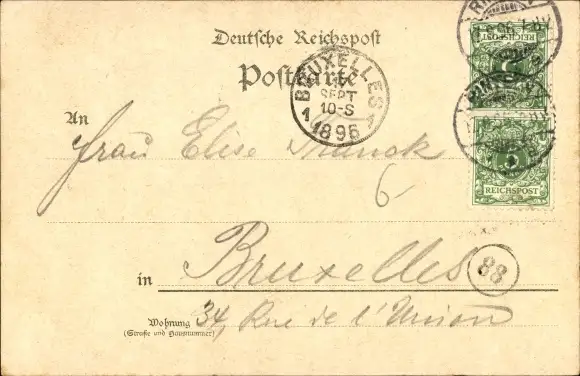 Deutsche Reichspost
Postkarte
BRUXELLES
SEPT
10-S
1 1895 1
REICHSPOST
REICHSPOST
An
Frau Elise Franck
6
in Bruxelles
88
Wohnung 34, Rue de l'Union
(Straße und Hausnummer)